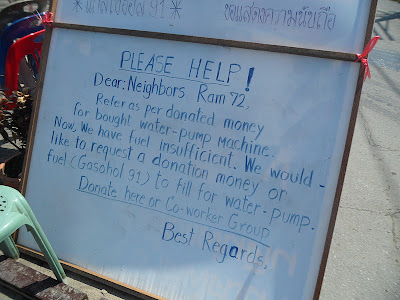 PLEASE HELP!
Dear: Neighbors Ram 72,
Refer as per donated money
for bought water-pump machine.
Now, We have fuel insufficient. We would-
like to request a donation money or
fuel (Gasohol 91) to fill for water-pump.
Donate here or Co-worker Group
Best Regards,